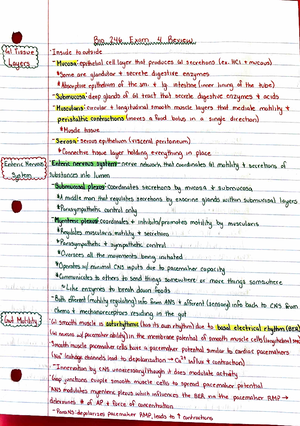 Bio 246 Exam 4 Review
GI Tissue Layers
- Inside to outside
- Mucosa: epithelial cell layer that produces GI secretions (ex. HCl + mucous)
* Some are glandular + secrete digestive enzymes
* Absorptive epithelium of the sm. + lg. intestine (inner lining of the tube)
- Submucosa: deep glands of GI tract that secrete digestive enzymes + acids
- Muscularis: circular + longitudinal smooth muscle layers that mediate motility +
peristaltic contractions (moves a food bolus in a single direction)
* Muscle tissue
- Serosa: serous epithelium (visceral peritoneum)
* Connective tissue layer holding everything in place
Enteric Nervous System
- Enteric nervous system: nerve network that coordinates GI motility + secretions of
substances into lumen
- Submucosal plexus: coordinates secretions by mucosa + submucosa
* A middle man that regulates secretions by exocrine glands within submucosal layers
* Parasympathetic control only
- Myenteric plexus: coordinates + inhibits/promotes motility by muscularis
* Regulates muscularis motility + secretions
* Parasympathetic + sympathetic control
* Oversees all the movements being initiated
* Operates w/ minimal CNS inputs due to pacemaker capacity
* Communicates to others to send things somewhere or move things somewhere
- Like enzymes to break down foods
- Both efferent (motility regulating) info from ANS + afferent (sensory) info back to CNS from
chemo + mechanoreceptors residing in the gut
Gut Motility
GI smooth muscle is autorhythmic (has its own rhythm) due to basal electrical rhythm (BER)
Smooth muscle pacemaker cells have a pacemaker potential similar to cardiac pacemakers
leakage channels lead to depolarization → Ca2+ influx + contraction)
* Innervation by CNS unnecessary, though it does modulate activity
Gap junctions couple smooth muscle cells to spread pacemaker potential
ANS modulates myenteric plexus which influences the BER via the pacemaker RMP →
determines # of AP + force of contraction
- ParaNS depolarizes pacemaker RMP, leads to ↑ contractions